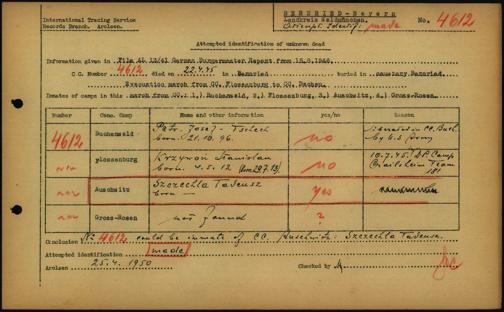 International Tracing Service
Records Branch. Arolsen.
BERNRIED - Bayern
Landkreis Waldmünchen.
Attempt. Identif.: made
No. 4612
Attempted identification of unknown dead
Information given in File AL 13/61 German Burgermaster Report from 15.9.1946
CC. Number 4612 died on 22.4.45 in Bernried buried in cemetery Bernried
Evacuation march from CC. Flossenburg to CC. Dachau.
Inmates of camps in this march from CC.: 1.) Buchenwald, 2.) Flossenburg, 3.) Auschwitz, 4.) Gross-Rosen
Number Conc. Camp Name yes/no Remarks
4612 Buchenwald Josef born 21.10.96. no liberated in CC. Buch. by U.S. Army
flossenburg Krzywon Stanislau born 4.5.12 no 10.7.45 DP Camp
Auschwitz Szczechla Tadeusz born — yes
Gross-Rosen not found ?
Conclusion: Nr 4612 could be inmate of C.C. Auschwitz: Szczechla Tadeusz.
Attempted identification made
Arolsen 25.4.1950 Checked by